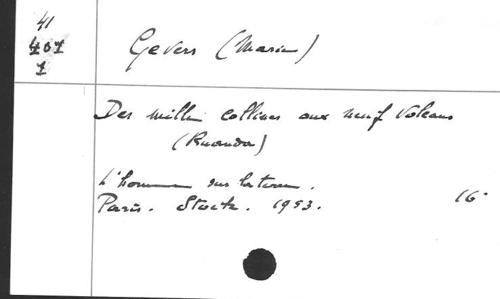 41
407
1
Gevers (Marie)
Des mille collines aux neuf Volcans
(Ruanda)
L'homme sur la terre.
Paris. Stock. 1953. 16°